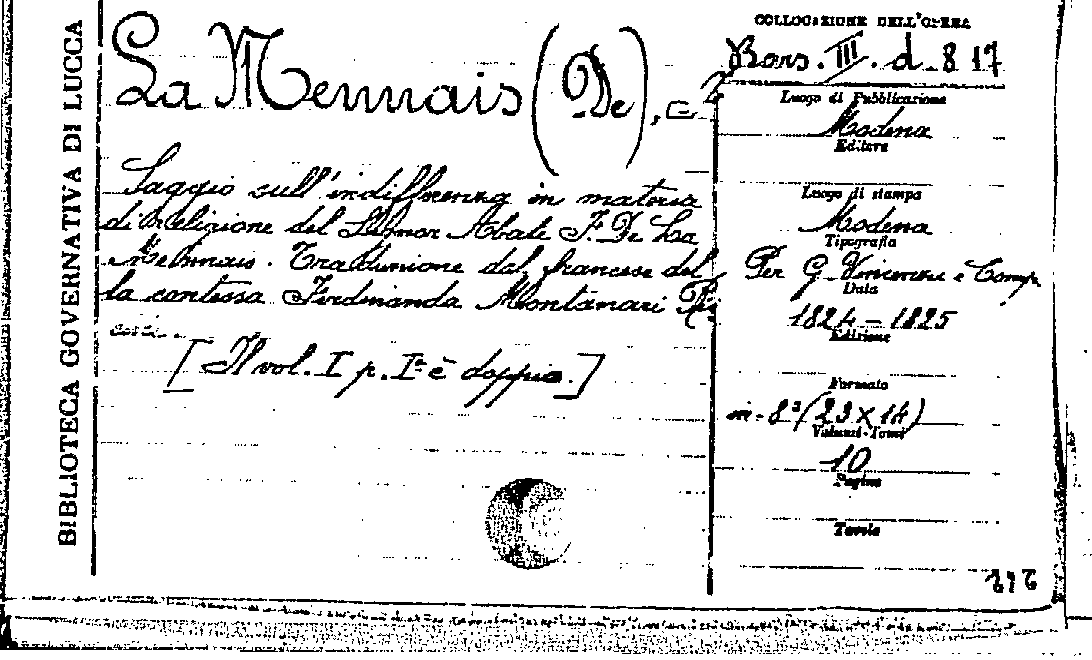 BIBLIOTECA GOVERNATIVA DI LUCCA
La Mennais (De),
Saggio sull'indifferenza in materia
di Religione del Signor Abate F. De La
Mennais. Traduzione dal francese del
la contessa Ferdinanda Montanari Ric
cini.
[Il vol. I p. Iª è doppio.]
COLLOCAZIONE DELL'OPERA
Bors. III. d. 8 17
Luogo di Pubblicazione
Modena
Editore
Luogo di stampa
Modena
Tipografia
Per G. Vincenzi e Comp.
Data
1824 – 1825
Edizione
Formato
in-8° (23 x 14)
Volumi-Tomi
10
Pagine
Tavole